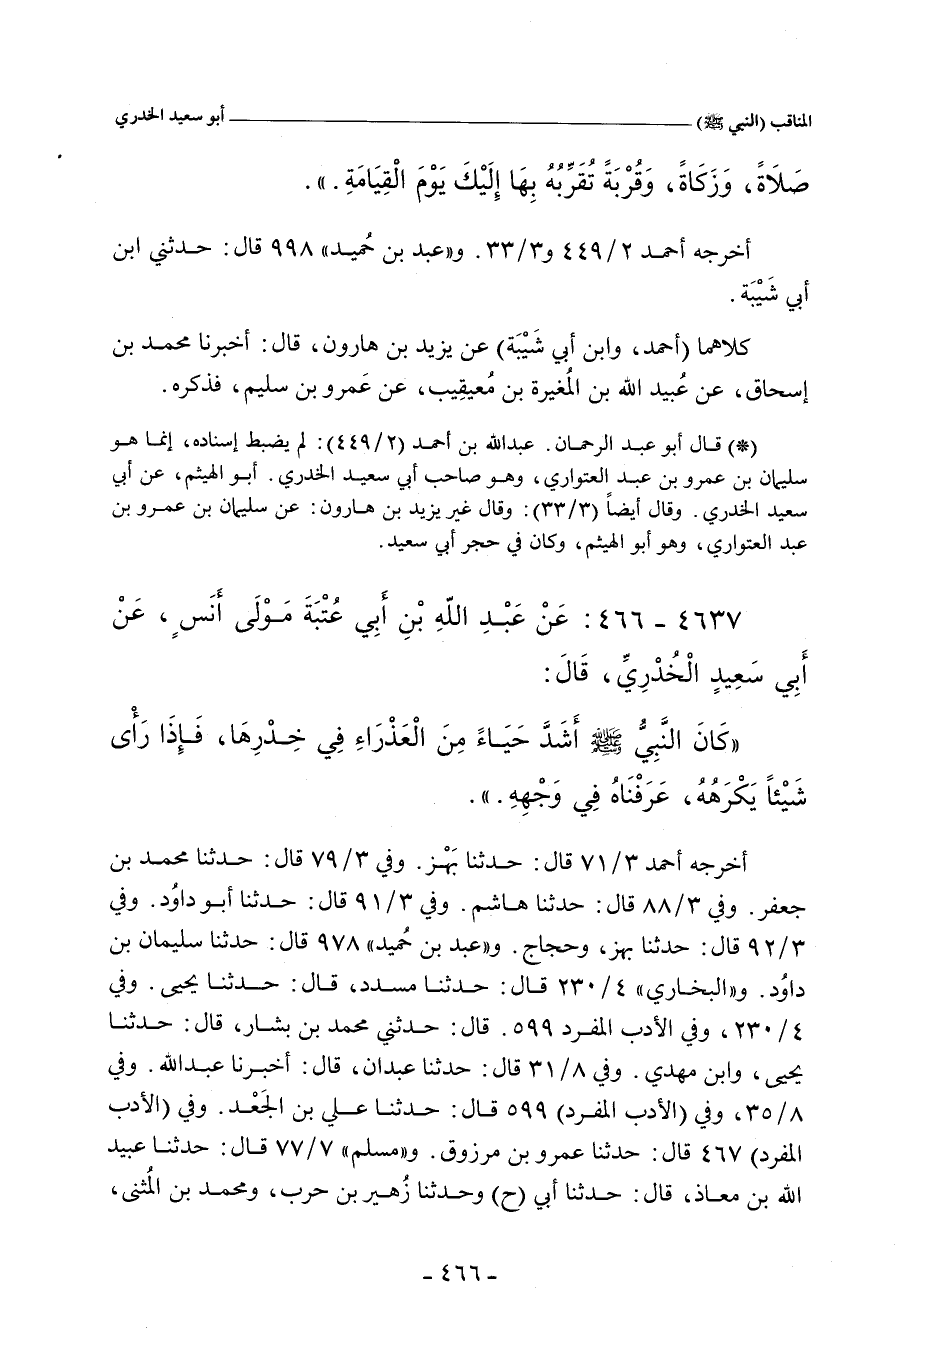 المناقب (النبي ﷺ) ــــــــــــــــــــــــــــــــ أبو سعيد الخدري
صَلَاةً، وَزَكَاةً، وَقُرْبَةً تُقَرِّبُهُ بِهَا إِلَيْكَ يَوْمَ الْقِيَامَةِ . » .
أخرجه أحمد ٤٤٩/٢ و٣٣/٣ . و«عبد بن حُميد» ٩٩٨ قال : حدثني ابن
أبي شَيْبَة .
كلاهما (أحمد، وابن أبي شَيْبَة) عن يزيد بن هارون، قال : أخبرنا محمد بن
إسحاق، عن عُبيد الله بن المُغيرة بن مُعيقيب، عن عَمرو بن سليم، فذكره .
(*) قال أبو عبد الرحمان . عبدالله بن أحمد (٤٤٩/٢) : لم يضبط إسناده، إنما هو
سليمان بن عمرو بن عبد العتواري، وهو صاحب أبي سعيد الخدري . أبو الهيثم، عن أبي
سعيد الخدري . وقال أيضاً (٣٣/٣) : وقال غير يزيد بن هارون : عن سليمان بن عمرو بن
عبد العتواري، وهو أبو الهيثم، وكان في حجر أبي سعيد .
٤٦٣٧ - ٤٦٦ : عَنْ عَبْدِ اللّهِ بْنِ أَبِي عُتْبَةَ مَوْلَى أَنَسٍ، عَنْ
أَبِي سَعِيدٍ الْخُدْرِيِّ، قَالَ :
«كَانَ النَّبِيُّ ﷺ أَشَدَّ حَيَاءً مِنَ الْعَذْرَاءِ فِي خِدْرِهَا، فَإِذَا رَأْى
شَيْئاً يَكْرَهُهُ، عَرَفْنَاهُ فِي وَجْهِهِ . » .
أخرجه أحمد ٧١/٣ قال : حدثنا بَهْز . وفي ٧٩/٣ قال : حدثنا محمد بن
جعفر . وفي ٨٨/٣ قال : حدثنا هاشم . وفي ٩١/٣ قال : حدثنا أبو داوُد . وفي
٩٢/٣ قال : حدثنا بهز، وحجاج . و«عبد بن حُميد» ٩٧٨ قال : حدثنا سليمان بن
داوُد . و«البخاري» ٢٣٠/٤ قال : حدثنا مسدد، قال : حدثنا يحيى . وفي
٢٣٠/٤، وفي الأدب المفرد ٥٩٩ . قال : حدثني محمد بن بشار، قال : حدثنا
يحيى، وابن مهدي . وفي ٣١/٨ قال : حدثنا عبدان، قال : أخبرنا عبدالله . وفي
٣٥/٨، وفي (الأدب المفرد) ٥٩٩ قال : حدثنا علي بن الجَعْد . وفي (الأدب
المفرد) ٤٦٧ قال : حدثنا عمرو بن مرزوق . و«مسلم» ٧٧/٧ قال : حدثنا عبيد
الله بن معاذ، قال : حدثنا أبي (ح) وحدثنا زُهير بن حرب، ومحمد بن المُثنى،
- ٤٦٦ -